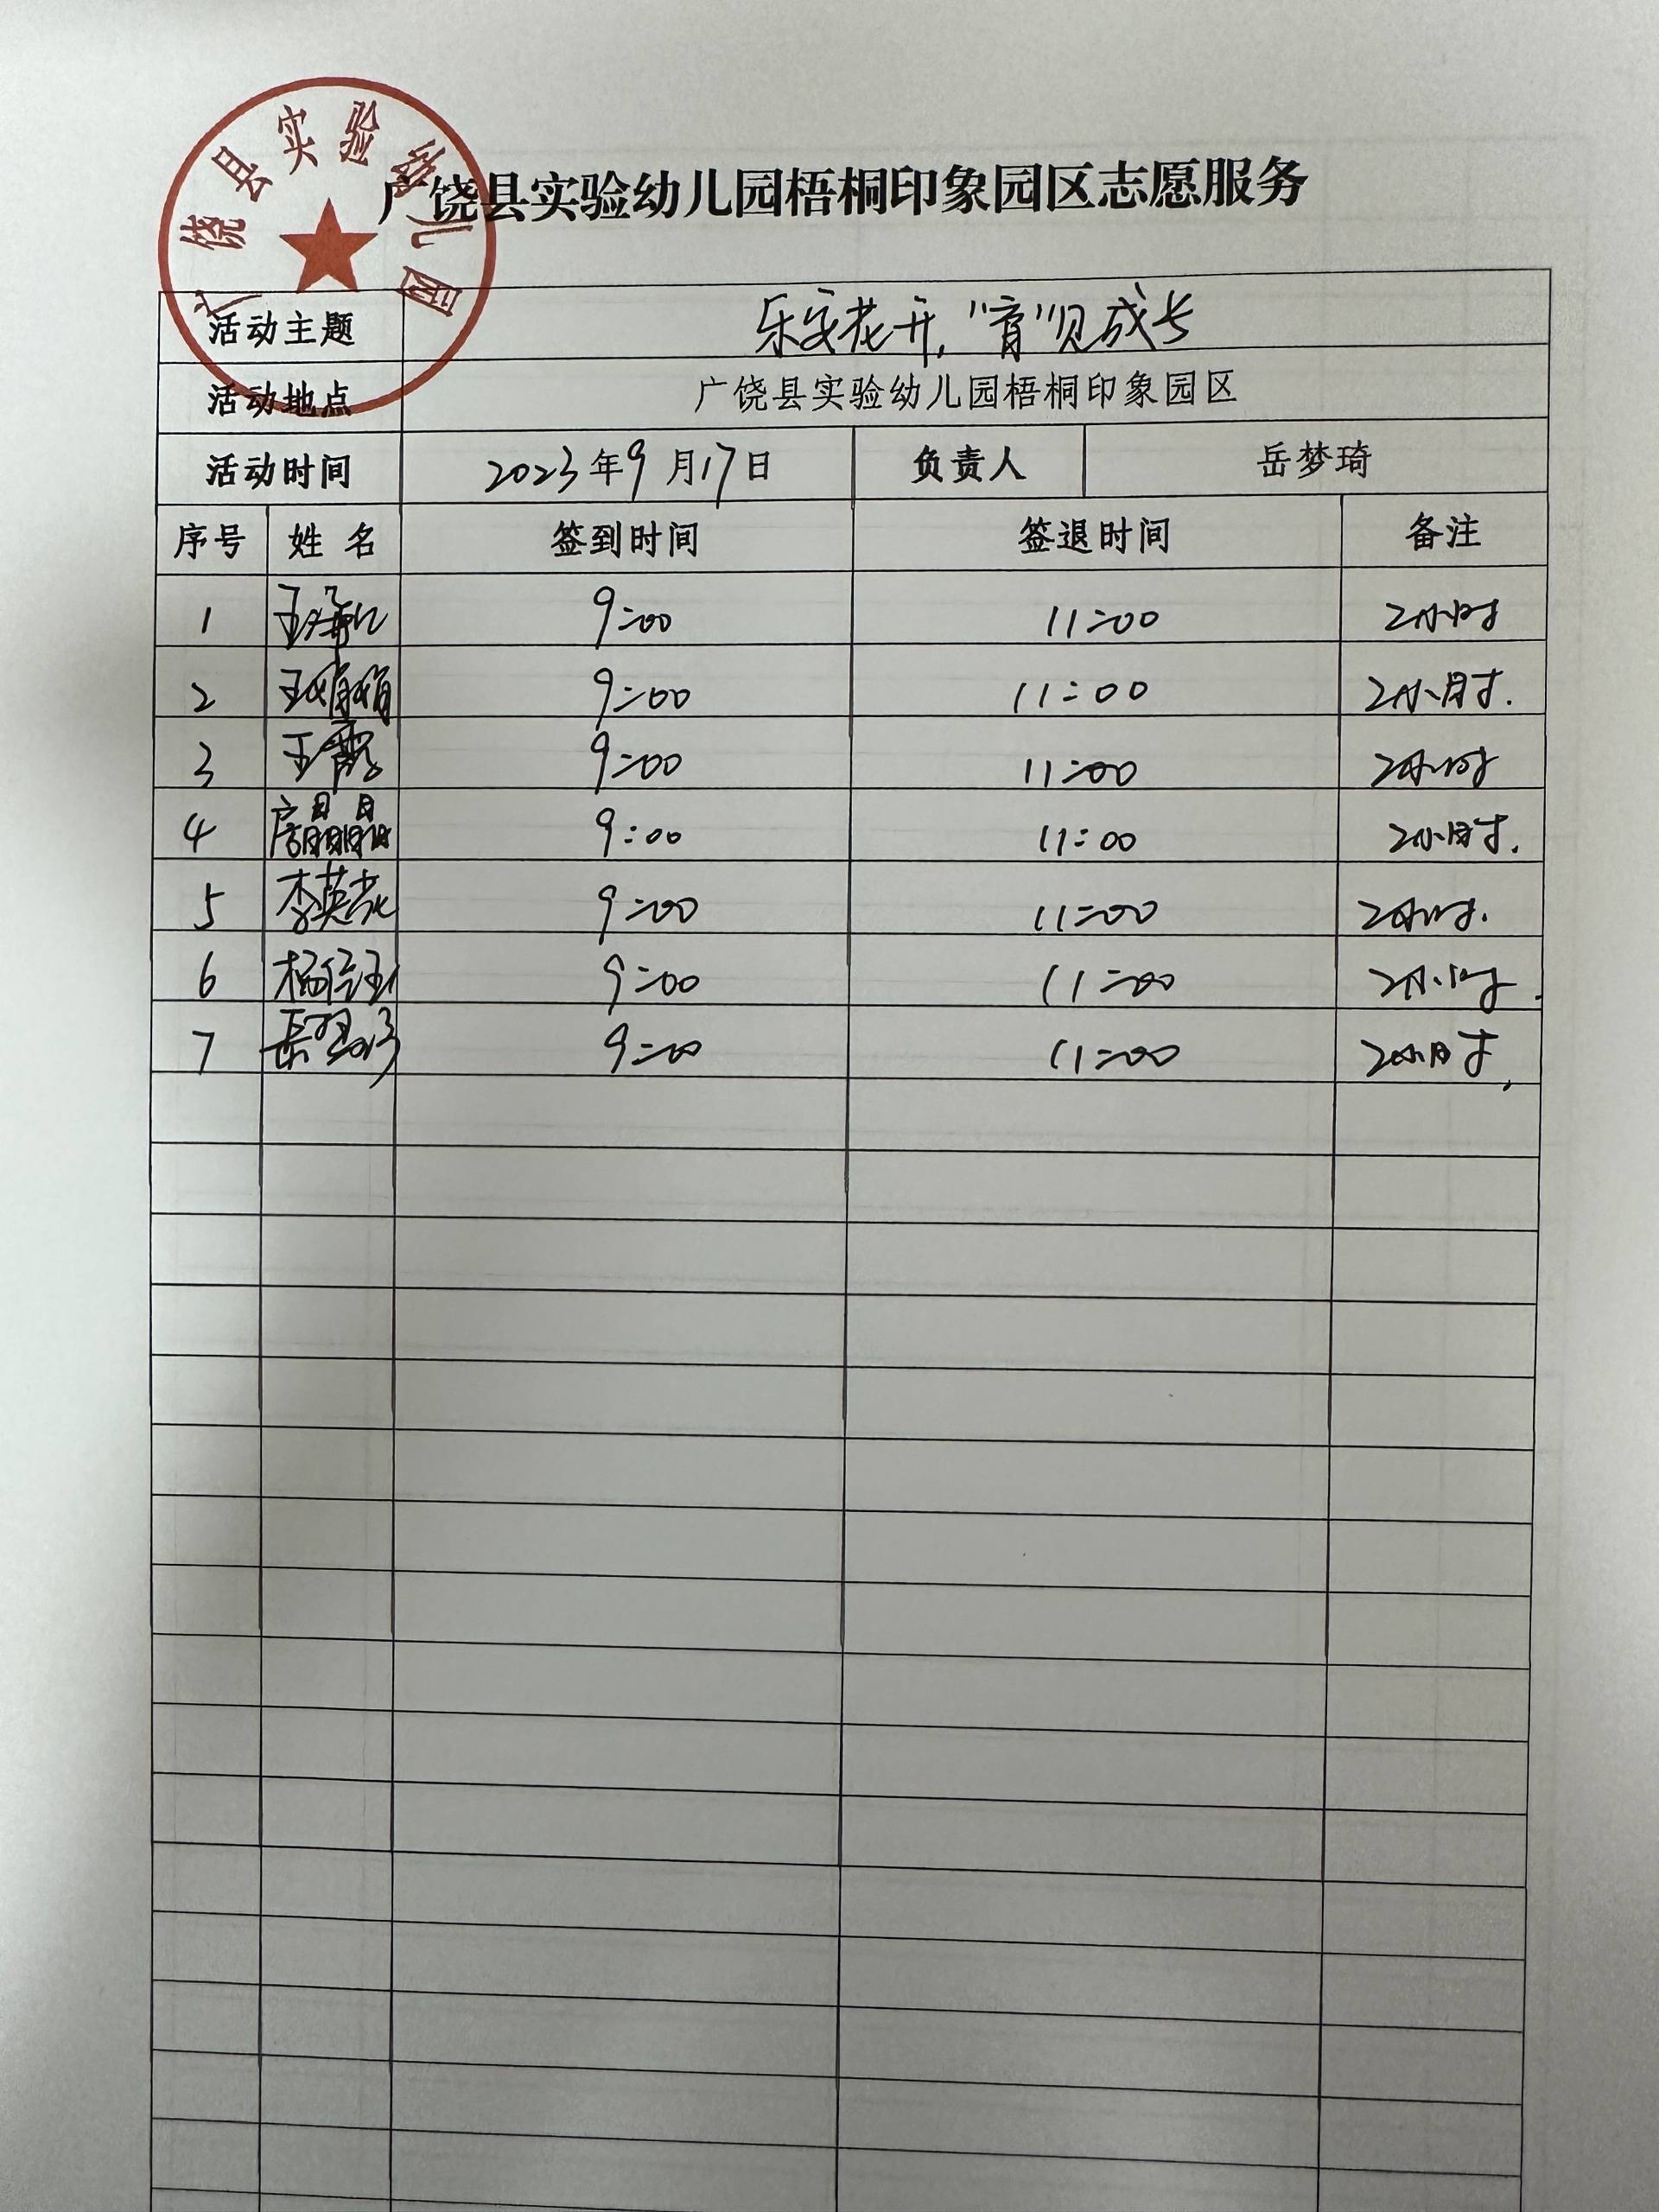 广饶县实验幼儿园
广饶县实验幼儿园梧桐印象园区志愿服务
活动主题 乐安花开,"育"见成长
活动地点 广饶县实验幼儿园梧桐印象园区
活动时间 2023年9月17日 负责人 岳梦琦
序号 姓名 签到时间 签退时间 备注
1 9:00 11:00 2小时
2 王娟娟 9:00 11:00 2小时.
3 王霞 9:00 11:00 2小时
4 房晶晶 9:00 11:00 2小时.
5 李英花 9:00 11:00 2小时.
6 9:00 11:00 2小时.
7 9:00 11:00 2小时.